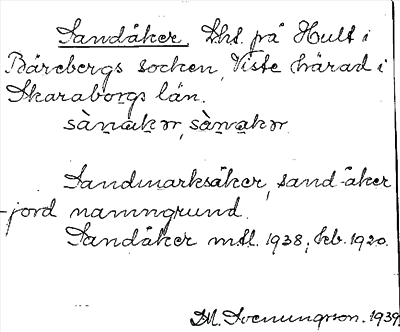 Sandåker. Lht. på Hult i
Bärebergs socken, Viste härad i
Skaraborgs län.
sànakər, sànakər
Sandmarksåker, sand-åker
-jord namngrund.
Sandåker mtl. 1938, kb. 1920.
M. Svenungson. 1939.